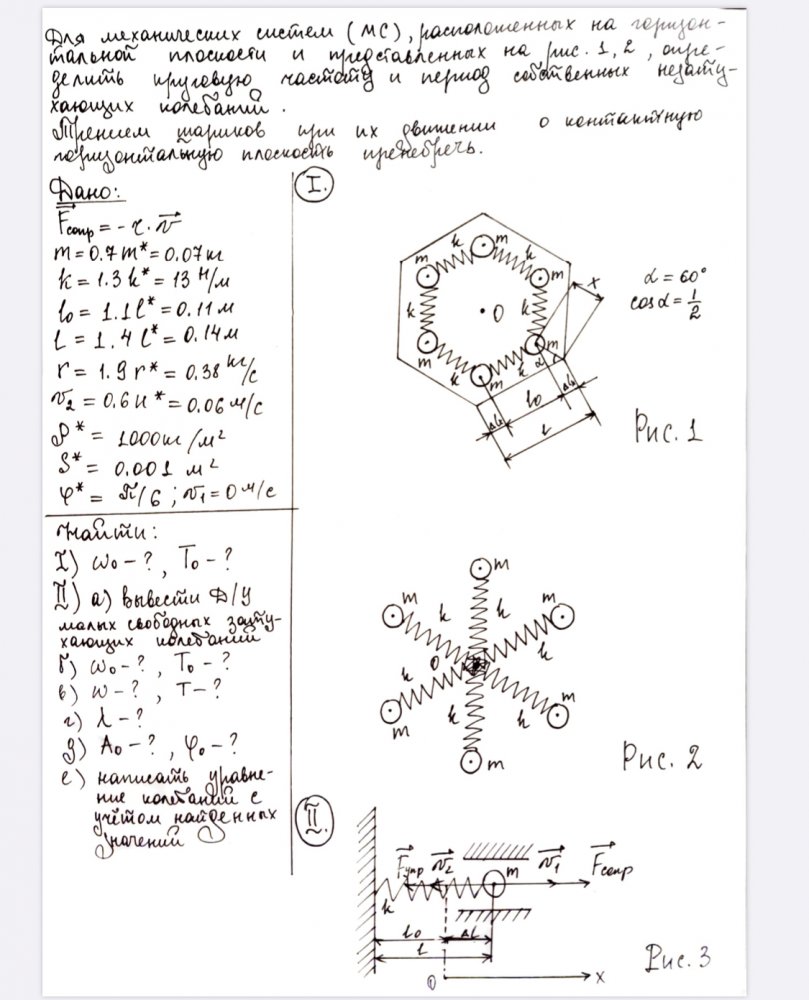 Для механических систем (МС), расположенных на горизон-
тальной плоскости и представленных на рис. 1, 2, опре-
делить круговую частоту и период собственных незату-
хающих колебаний.
Трением шариков при их движении о контактную
горизонтальную плоскость пренебречь.
Дано:
Fсопр = - r · v
m = 0.7 m* = 0.07 кг
k = 1.3 k* = 13 Н/м
l₀ = 1.1 l* = 0.11 м
l = 1.4 l* = 0.14 м
r = 1.9 r* = 0.38 кг/с
v₂ = 0.6 u* = 0.06 м/с
ρ* = 1000 кг/м²
S* = 0.001 м²
φ* = π/6 ; v₁ = 0 м/с
Найти:
I) ω₀ - ? , T₀ - ?
II) а) вывести Д/У
малых свободных зату-
хающих колебаний
б) ω₀ - ? , T₀ - ?
в) ω - ? , T - ?
г) λ - ?
д) A₀ - ? , φ₀ - ?
е) написать уравне-
ние колебаний с
учётом найденных
значений
I.
k
m
m
k
m
k
x
α = 60°
cos α = 1/2
O
k
k
m
m
α
k
k
m
Δl
l₀
Δl
l
Рис. 1
m
m
k
k
m
k
O
k
k
k
m
m
m
Рис. 2
II.
Fупр
v₂
m
v₁
Fсопр
k
l₀
Δl
l
0
x
Рис. 3